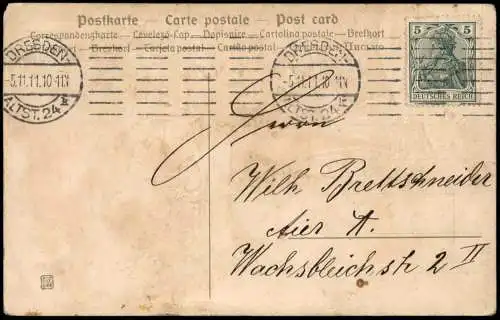 Postkarte — Carte postale — Post card
Correspondenzkarte — Levelező-Lap — Dopisnice — Cartolina postale — Brefkort
Brevkort — Tarjeta postal — Cartão postal
DRESDEN-
5.11.11.10-11N
ALTST. 24
DRESDEN-
5.11.11.10-11N
ALTST. 24
5 5
DEUTSCHES REICH
Wilh Brettschneider
Hier A.
Wachsbleichstr 2 II